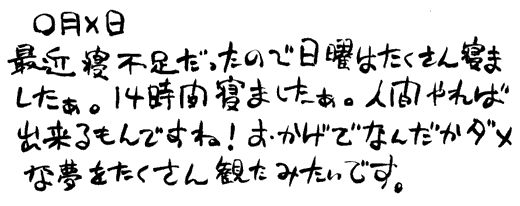 〇月×日
最近寝不足だったので日曜はたくさん寝ま
したぁ。14時間寝ましたぁ。人間やれば
出来るもんですね!おかげでなんだかダメ
な夢をたくさん観たみたいです。